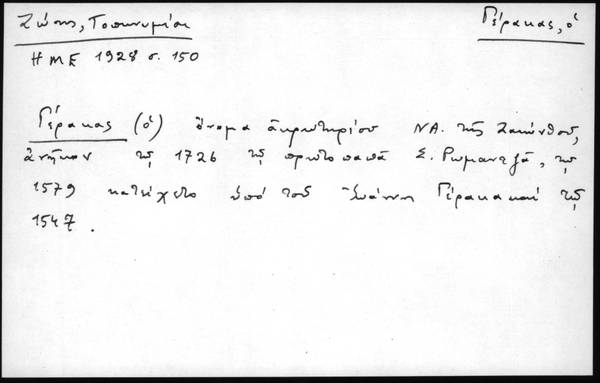 Ζώης, Τοπωνυμίαι
Γέρακας, ὁ
ΗΜΕ 1928 σ. 150
Γέρακας (ὁ) ὄνομα ἀκρωτηρίου ΝΑ. τῆς Ζακύνθου,
ἀνῆκον τῷ 1726 τῷ πρωτοπαπᾷ Σ. Ρωμαντζᾷ, τῷ
1579 κατείχετο ὑπό τοῦ Ἰωάννη Γέρακα καί τῷ
1547.